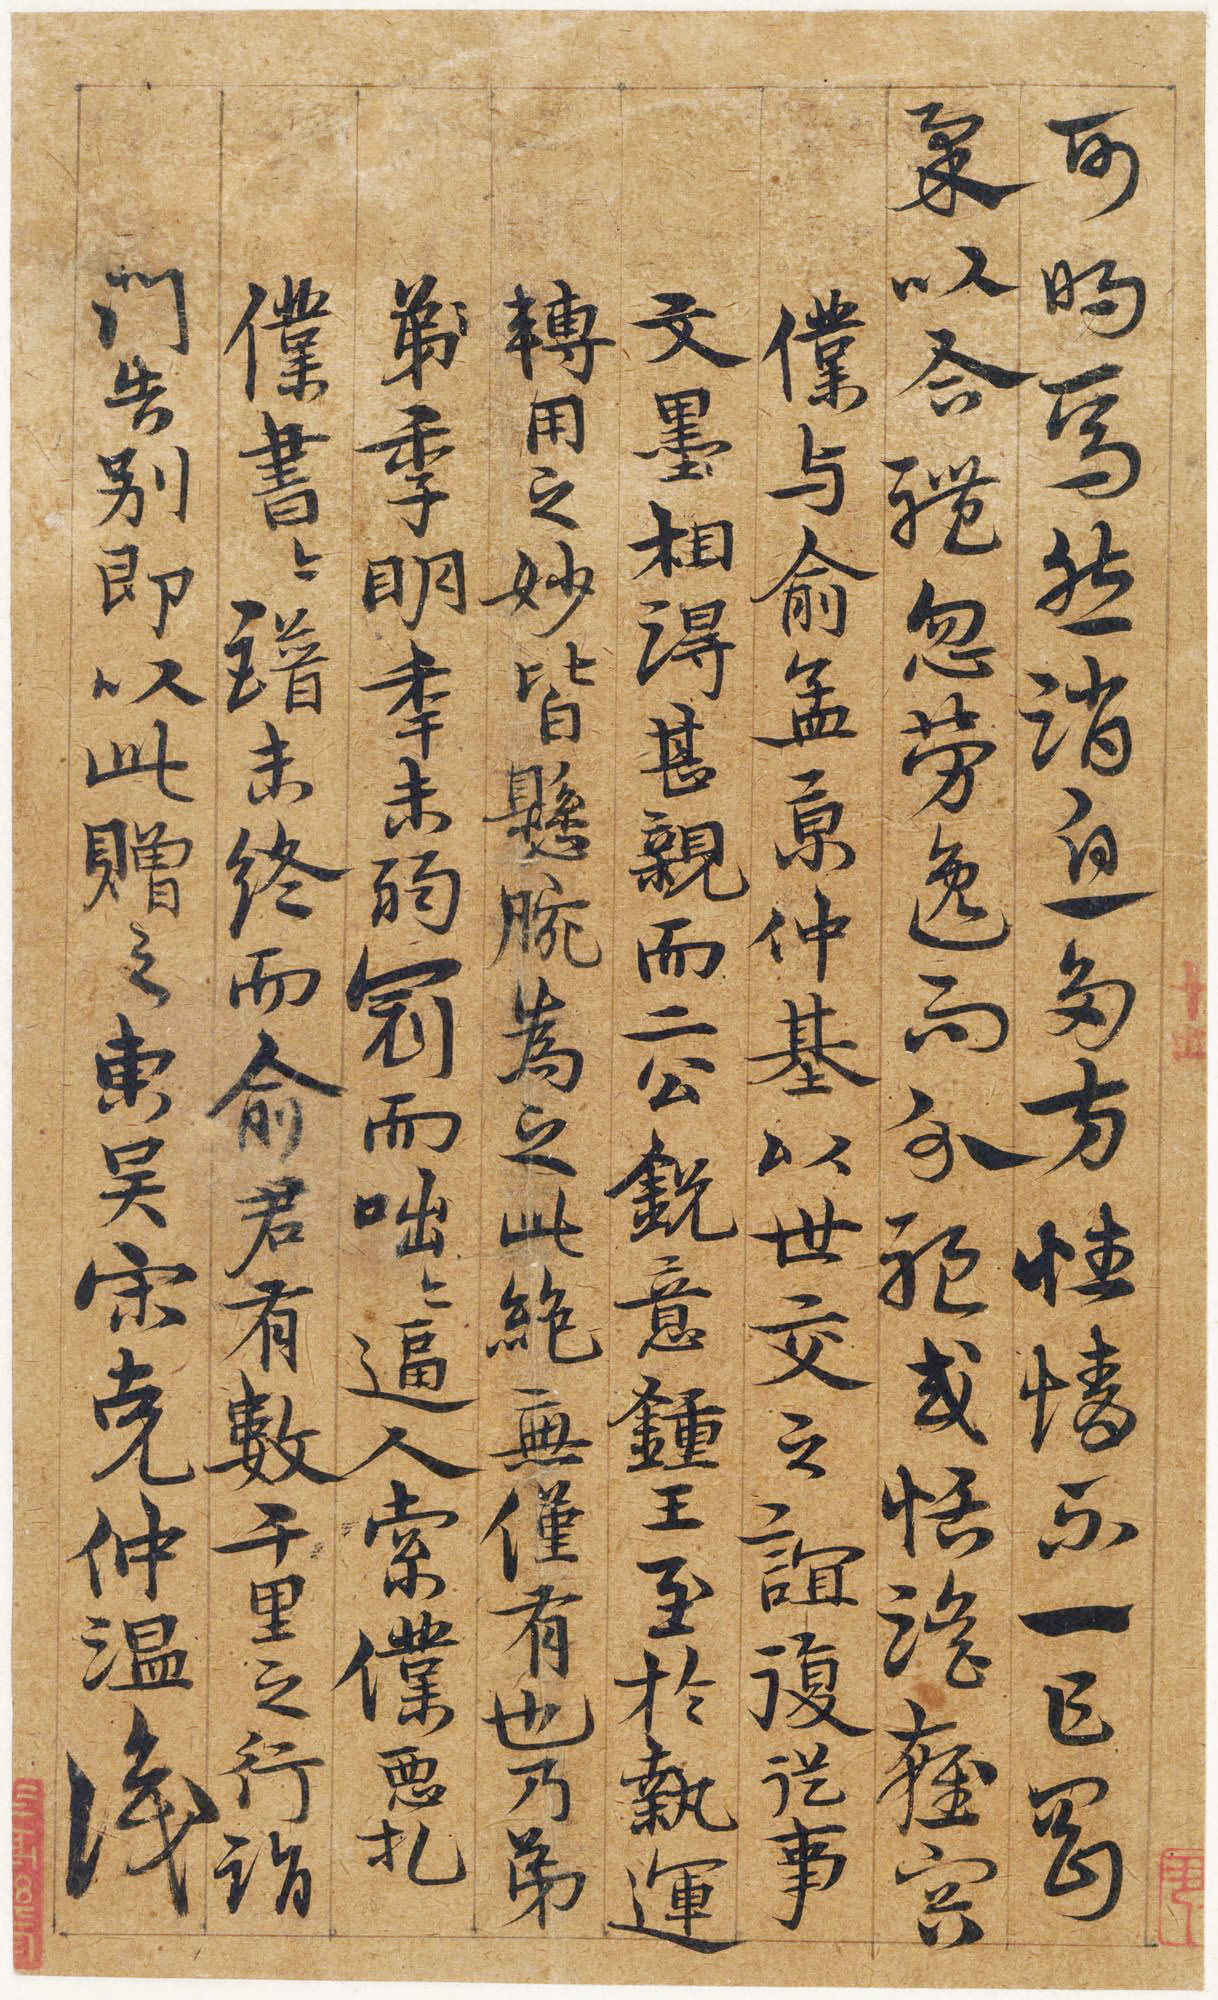 可明焉然消息多方性情不一乍剛
柔以合體忽勞逸而分驅或恬澹雍容
僕與俞孟京仲基以世交之誼復從事
文墨相得甚親而二公銳意鍾王至於執運
轉用之妙皆懸腕為之此絕無僅有也乃弟
弟季明秊未弱冠而咄〻逼人索僕惡札
僕書〻譜未終而俞君有數千里之行詣
門告別即以此贈之東吳宋克仲溫識